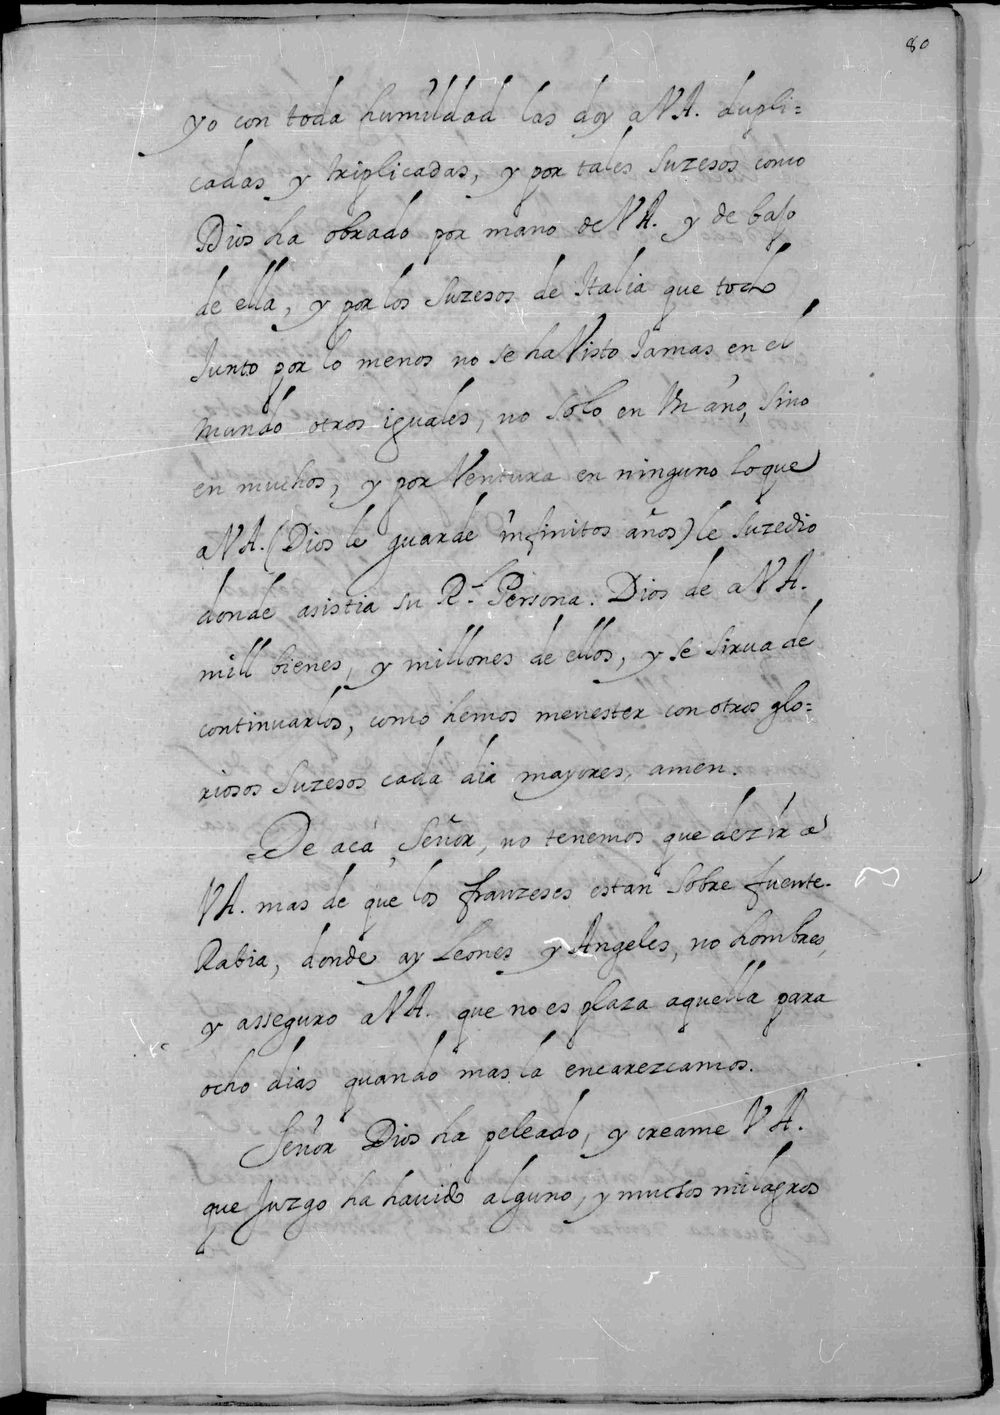 80
yo con toda humildad las doy a VA. dupli=
cadas y triplicadas, y por tales Suzesos como
Dios ha obrado por mano de VA. y de bajo
de ella, y por los Suzesos de Italia que todo
Junto por lo menos no se ha Visto Jamas en el
mundo otros iguales, no solo en Vn año, sino
en muchos, y por Ventura en ninguno lo que
a VA. (Dios le guarde infinitos años) le suzedio
donde asistia su R.l Persona. Dios de a VA.
mill bienes, y millones de ellos, y se sirua de
continuarlos, como hemos menester con otros glo=
riosos Suzesos cada dia mayores, amen.
De acá, Señor, no tenemos que dezir a
VA. mas de que los franzeses estan sobre fuente-
Rabia, donde ay Leones y Angeles, no hombres,
y asseguro a VA. que no es plaza aquella para
ocho dias quando mas la encarezcamos.
Señor Dios ha peleado, y creame VA.
que Juzgo ha hauido alguno, y muchos milagros